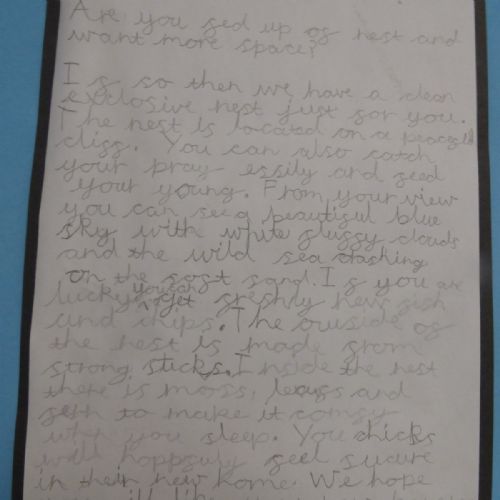 Are you fed up of nest and
want more space?
If so then we have a clean
exclosive nest just for you.
The nest is located on a peacefull
cliff. You can also catch
your pray essily and feed
your young. From your view
you can see a beautiful blue
sky with white fluffy clouds
and the wild sea dashing
on the soft sand. If you are
lucky you can get freshly new fish
and chips. The ouside of
the nest is made from
strong sticks. Inside the nest
there is moss, and
to make it comfy
you sleep. You chicks
will hoppfuly feel sucure
in their new home. We hope
will like